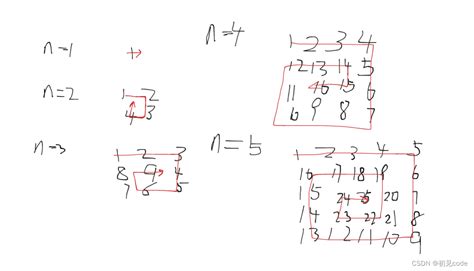 n=1
1
n=2
1 2
4 3
n=3
1 2 3
8 9 4
7 6 5
n=4
1 2 3 4
12 13 14 5
11 16 15 6
10 9 8 7
n=5
1 2 3 4 5
16 17 18 19 6
15 24 25 20 7
14 23 22 21 8
13 12 11 10 9
CSDN @初见code